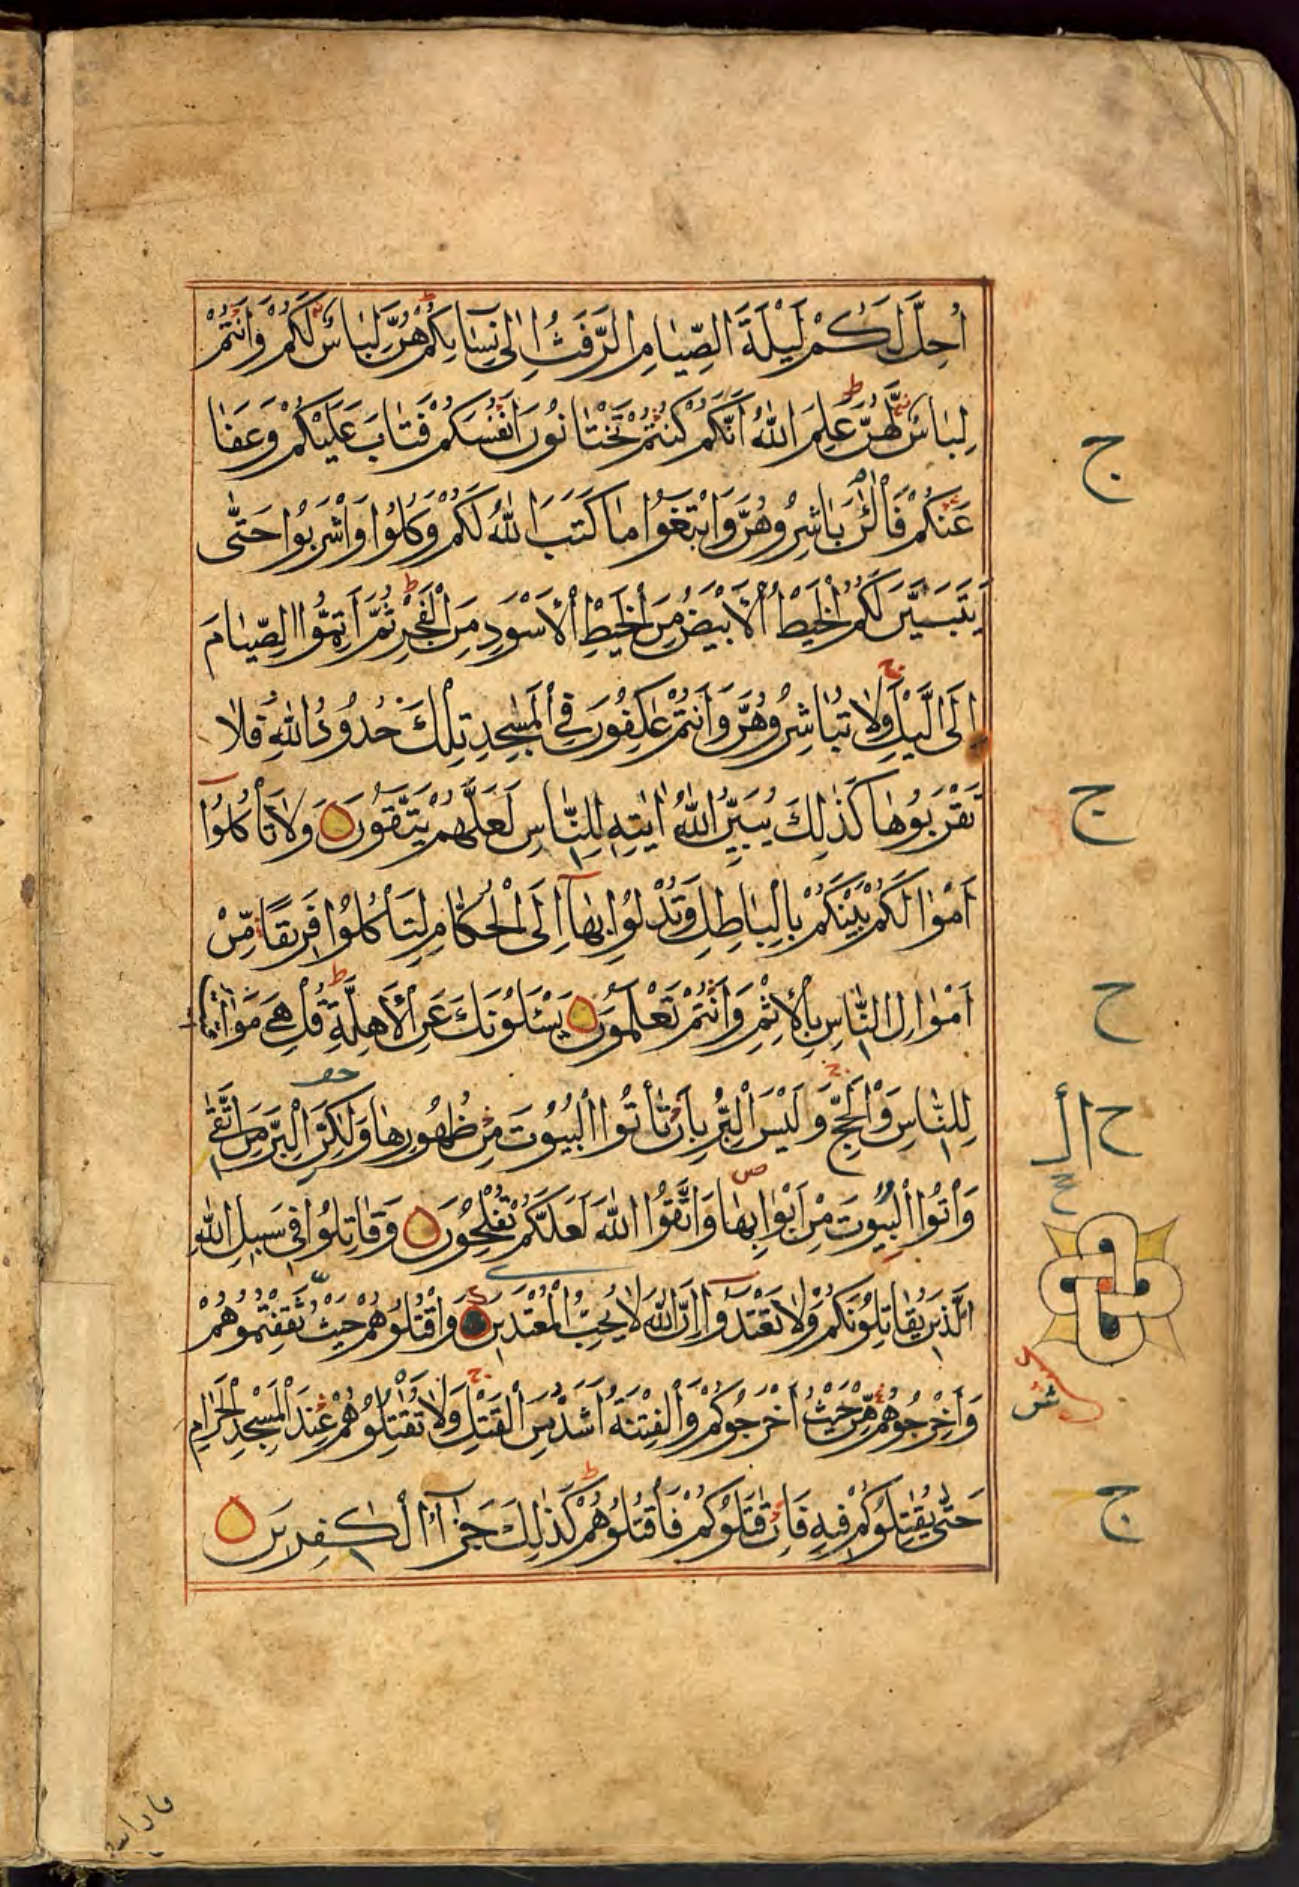 اُحِلَّ لَكُمْ لَيْلَةَ الصِّيَامِ الرَّفَثُ اِلٰى نِسَآىِٕكُمْ هُنَّ لِبَاسٌ لَكُمْ وَاَنْتُمْ
لِبَاسٌ لَهُنَّ عَلِمَ اللّٰهُ اَنَّكُمْ كُنْتُمْ تَخْتَانُونَ اَنْفُسَكُمْ فَتَابَ عَلَيْكُمْ وَعَفَا
عَنْكُمْ فَالْـٰٔنَ بَاشِرُوهُنَّ وَابْتَغُوا مَا كَتَبَ اللّٰهُ لَكُمْ وَكُلُوا وَاشْرَبُوا حَتّٰى
يَتَبَيَّنَ لَكُمُ الْخَيْطُ الْاَبْيَضُ مِنَ الْخَيْطِ الْاَسْوَدِ مِنَ الْفَجْرِ ثُمَّ اَتِمُّوا الصِّيَامَ
اِلَى الَّيْلِ وَلَا تُبَاشِرُوهُنَّ وَاَنْتُمْ عٰكِفُونَ فِي الْمَسٰجِدِ تِلْكَ حُدُودُ اللّٰهِ فَلَا
تَقْرَبُوهَا كَذٰلِكَ يُبَيِّنُ اللّٰهُ اٰيٰتِهِ لِلنَّاسِ لَعَلَّهُمْ يَتَّقُونَ وَلَا تَأْكُلُوٓا
اَمْوَالَكُمْ بَيْنَكُمْ بِالْبَاطِلِ وَتُدْلُوا بِهَآ اِلَى الْحُكَّامِ لِتَأْكُلُوا فَرِيقًا مِّنْ
اَمْوَالِ النَّاسِ بِالْاِثْمِ وَاَنْتُمْ تَعْلَمُونَ يَسْـَٔلُونَكَ عَنِ الْاَهِلَّةِ قُلْ هِيَ مَوَاقِيتُ
لِلنَّاسِ وَالْحَجِّ وَلَيْسَ الْبِرُّ بِاَنْ تَأْتُوا الْبُيُوتَ مِنْ ظُهُورِهَا وَلٰكِنَّ الْبِرَّ مَنِ اتَّقٰى
وَأْتُوا الْبُيُوتَ مِنْ اَبْوَابِهَا وَاتَّقُوا اللّٰهَ لَعَلَّكُمْ تُفْلِحُونَ وَقَاتِلُوا فِي سَبِيلِ اللّٰهِ
الَّذِينَ يُقَاتِلُونَكُمْ وَلَا تَعْتَدُوٓا اِنَّ اللّٰهَ لَا يُحِبُّ الْمُعْتَدِينَ وَاقْتُلُوهُمْ حَيْثُ ثَقِفْتُمُوهُمْ
وَاَخْرِجُوهُمْ مِّنْ حَيْثُ اَخْرَجُوكُمْ وَالْفِتْنَةُ اَشَدُّ مِنَ الْقَتْلِ وَلَا تُقٰتِلُوهُمْ عِنْدَ الْمَسْجِدِ الْحَرَامِ
حَتّٰى يُقٰتِلُوكُمْ فِيهِ فَاِنْ قٰتَلُوكُمْ فَاقْتُلُوهُمْ كَذٰلِكَ جَزَآءُ الْكٰفِرِينَ
ج
ج
ح
ح
ج